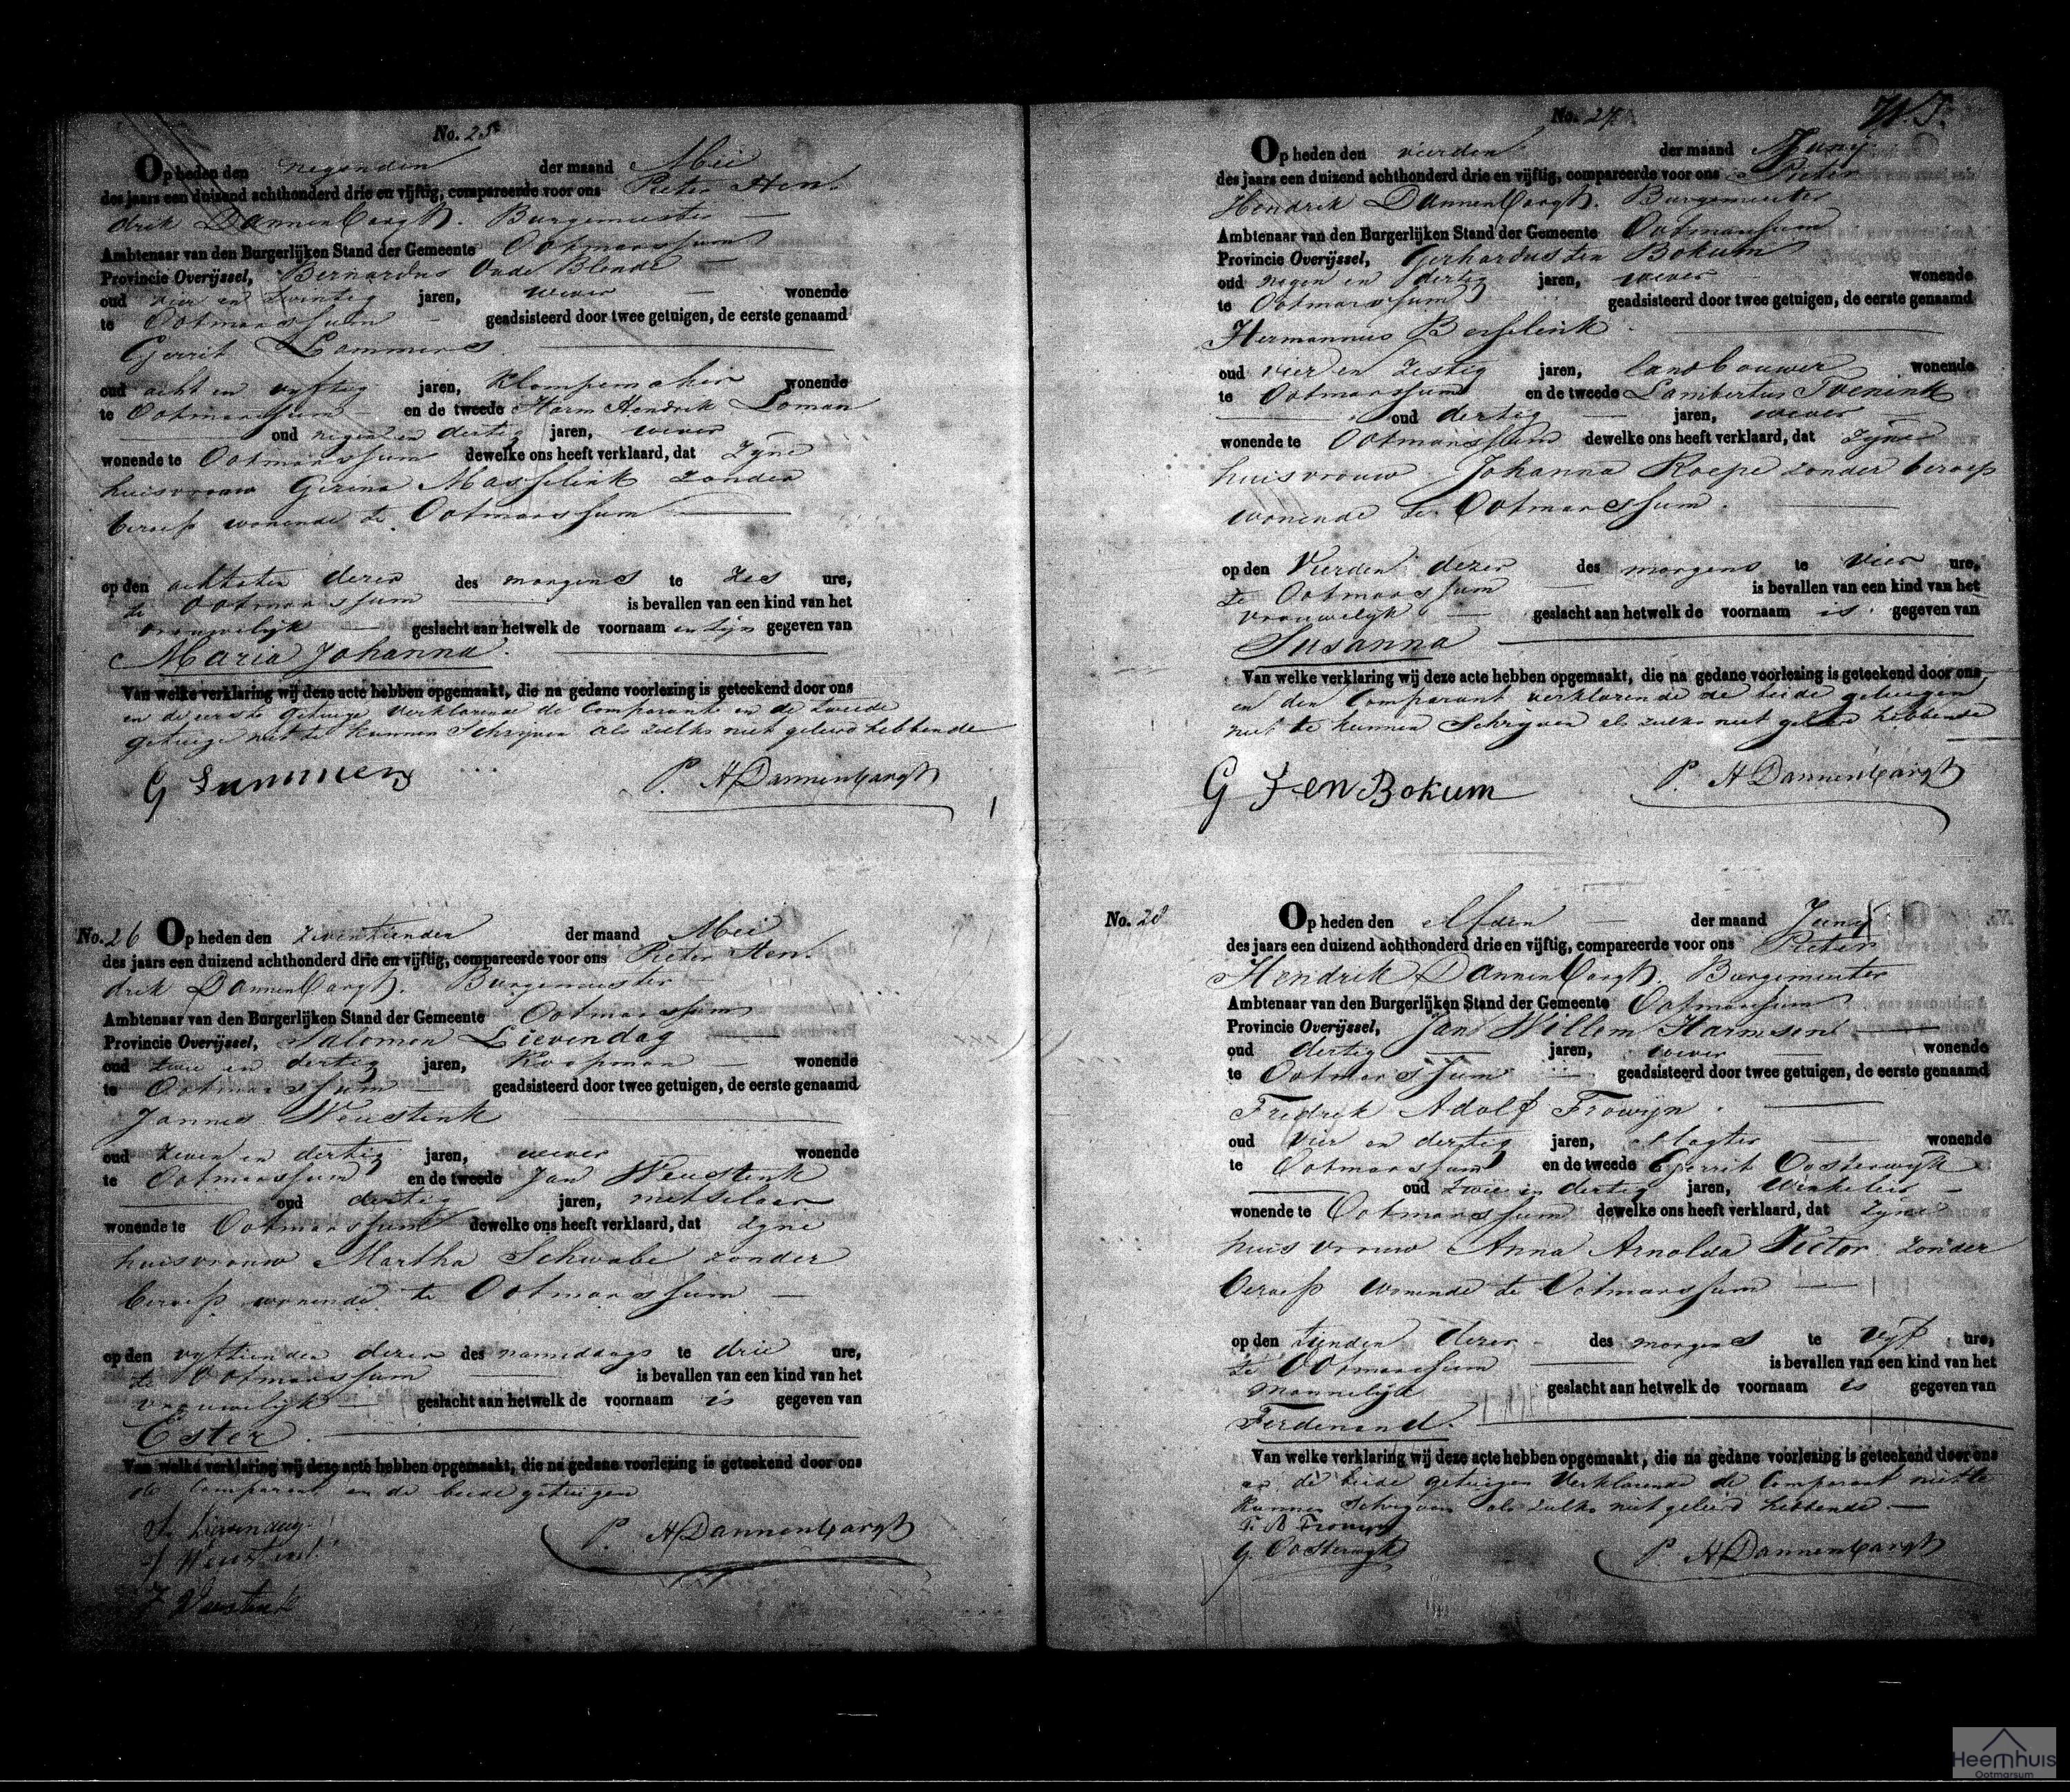 No. 25
Op heden den negenden der maand Mei
des jaars een duizend achthonderd drie en vijftig, compareerde voor ons Pieter Hen-
drik Dannenbargh. Burgemeester
Ambtenaar van den Burgerlijken Stand der Gemeente Ootmarssum
Provincie Overijssel, Bernardus Oude Blenke
oud vier en twintig jaren, wever wonende
te Ootmarssum geadsisteerd door twee getuigen, de eerste genaamd
Gerrit Lammers
oud acht en vyftig jaren, Klompemaker wonende
te Ootmarssum en de tweede Harm Hendrik Loman
oud negen en dertig jaren, wever
wonende te Ootmarssum dewelke ons heeft verklaard, dat zyne
huisvrouw Gerina Masselink zonder
beroep wonende te Ootmarssum
op den achtsten dezer des morgens te zes ure,
te Ootmarssum is bevallen van een kind van het
vrouwelijk geslacht aan hetwelk de voornaam en zijn gegeven van
Maria Johanna.
Van welke verklaring wij deze acte hebben opgemaakt, die na gedane voorlezing is geteekend door ons
en de eerste getuige verklarende de Comparant en de tweede
getuige niet te kunnen Schrijven als zulks niet geleerd hebbende
G Lammers P. H Dannenbargh
No. 26 Op heden den zeventienden der maand Mei
des jaars een duizend achthonderd drie en vijftig, compareerde voor ons Pieter Hen-
drik Dannenbargh. Burgemeester
Ambtenaar van den Burgerlijken Stand der Gemeente Ootmarssum
Provincie Overijssel, Salomon Lievendag
oud twee en dertig jaren, Koopman wonende
te Ootmarssum geadsisteerd door twee getuigen, de eerste genaamd
Jannes Weustink
oud zeven en dertig jaren, wever wonende
te Ootmarssum en de tweede Jan Weustink
oud dertig jaren, metselaar
wonende te Ootmarssum dewelke ons heeft verklaard, dat zyne
huisvrouw Martha Schwabe zonder
beroep wonende te Ootmarssum
op den vyftienden dezer des namiddags te drie ure,
te Ootmarssum is bevallen van een kind van het
vrouwelijk geslacht aan hetwelk de voornaam is gegeven van
Ester.
Van welke verklaring wij deze acte hebben opgemaakt, die na gedane voorlezing is geteekend door ons
de Comparant en de beide getuigen
S. Lievendag
J Weustink P. H Dannenbargh
J Weustink
No. 27 W.T.
Op heden den vierden der maand Junij
des jaars een duizend achthonderd drie en vijftig, compareerde voor ons Pieter
Hendrik Dannenbargh. Burgemeester
Ambtenaar van den Burgerlijken Stand der Gemeente Ootmarssum
Provincie Overijssel, Gerhardus ten Bokum
oud negen en dertig jaren, wever wonende
te Ootmarssum geadsisteerd door twee getuigen, de eerste genaamd
Hermannus Besselink
oud vier en zestig jaren, landbouwer wonende
te Ootmarssum en de tweede Lambertus Tvenink
oud dertig jaren, wever
wonende te Ootmarssum dewelke ons heeft verklaard, dat zyne
huisvrouw Johanna Roepe zonder beroep
wonende te Ootmarssum.
op den Vierden dezer des morgens te vier ure,
te Ootmarssum is bevallen van een kind van het
vrouwelyk geslacht aan hetwelk de voornaam is gegeven van
Susanna
Van welke verklaring wij deze acte hebben opgemaakt, die na gedane voorlezing is geteekend door ons
en den Comparant verklarende de beide getuigen
niet te kunnen Schryven als zulks niet geleerd hebbende
G Ten Bokum P. H Dannenbargh
No. 28 Op heden den Elfden der maand Junij
des jaars een duizend achthonderd drie en vijftig, compareerde voor ons Pieter
Hendrik Dannenbargh. Burgemeester
Ambtenaar van den Burgerlijken Stand der Gemeente Ootmarssum
Provincie Overijssel, Jan Willem Harmsen
oud dertig jaren, wever wonende
te Ootmarssum geadsisteerd door twee getuigen, de eerste genaamd
Fredrik Adolf Frowijn.
oud vier en dertig jaren, Slagter wonende
te Ootmarssum en de tweede Gerrit Oosterwyk
oud twee en dertig jaren, Winkelier
wonende te Ootmarssum dewelke ons heeft verklaard, dat zyne
huisvrouw Anna Arnolda Victor zonder
beroep wonende te Ootmarssum
op den tienden dezer des morgens te vyf ure,
te Ootmarssum is bevallen van een kind van het
mannelijk geslacht aan hetwelk de voornaam is gegeven van
Ferdenand.
Van welke verklaring wij deze acte hebben opgemaakt, die na gedane voorlezing is geteekend door ons
en de beide getuigen Verklarende de Comparant niet te
kunnen Schryven als zulks niet geleerd hebbende
F. A Frowyn
G. Oosterwyk P. H Dannenbargh
Heemhuis
Ootmarsum